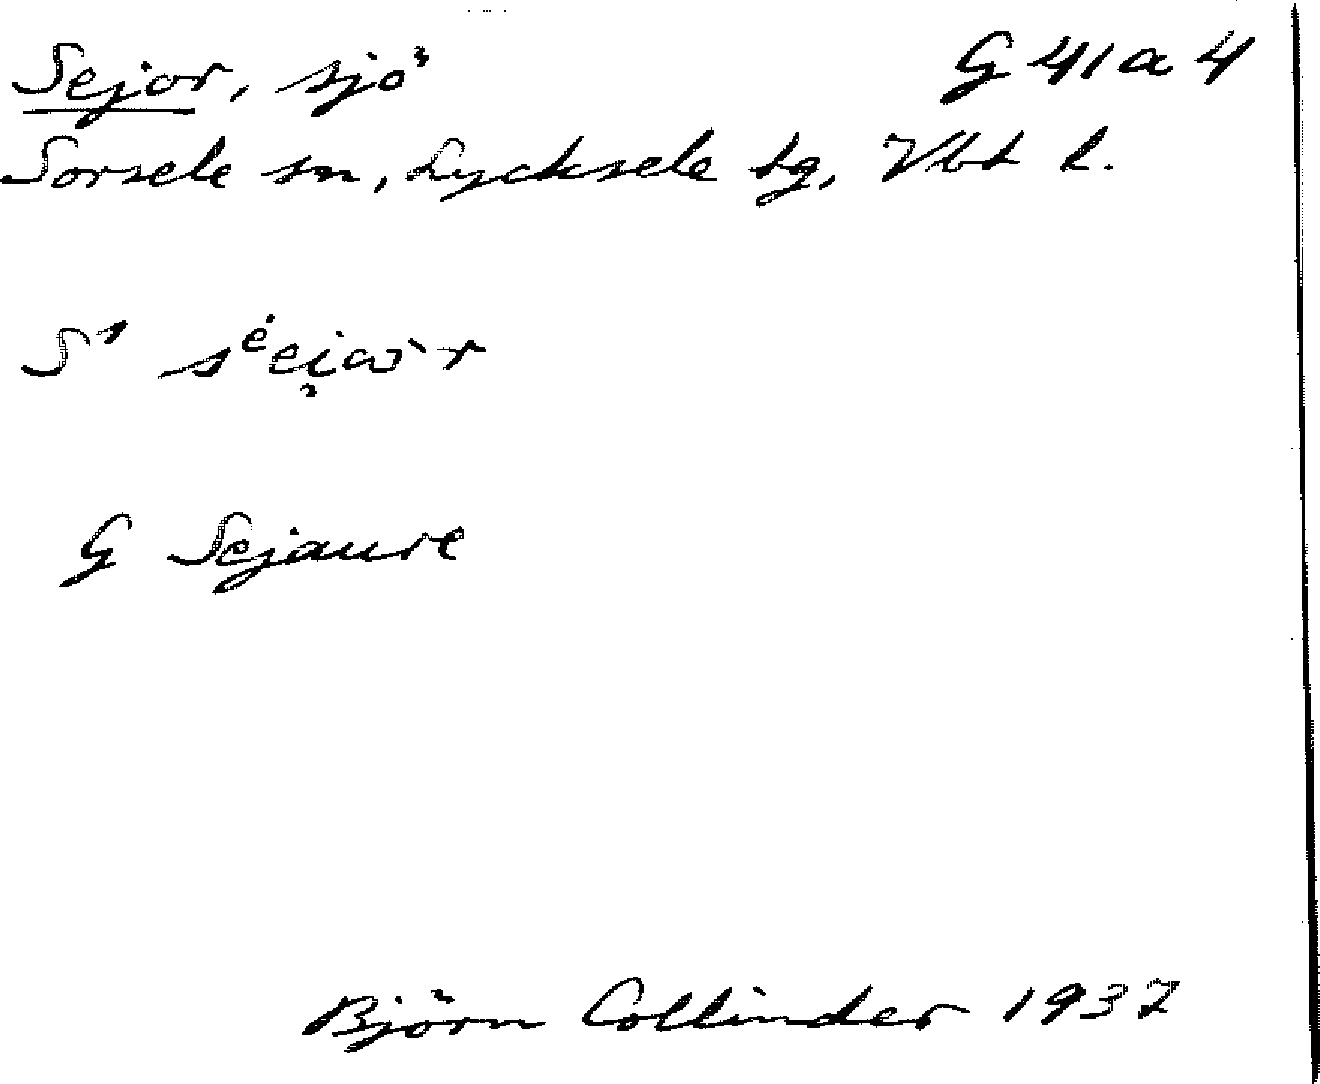 Sejor, sjö G 41 a 4
Sorsele sn, Lycksele tg, Vbt l.
G Sejaure
Björn Collinder 1937